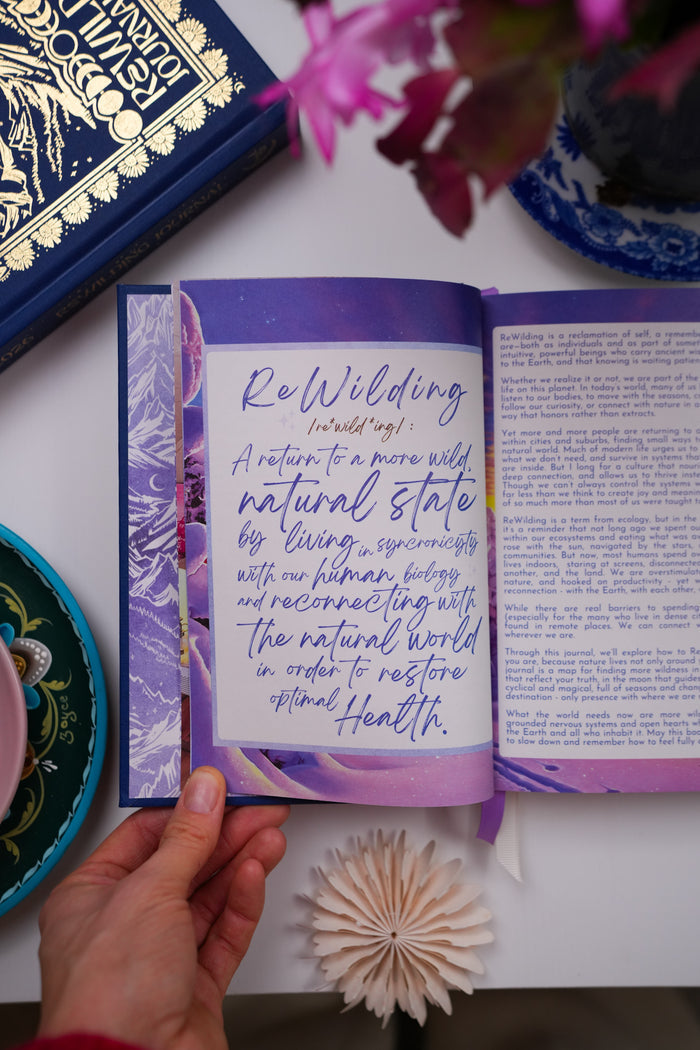 REWILD
JOURNAL
2026 REWILDING JOURNAL
ReWilding
/re*wild*ing/ :
A return to a more wild,
natural state
by living in syncronicity
with our human biology
and reconnecting with
the natural world
in order to restore
optimal Health.
ReWilding is a reclamation of self, a
are—both as individuals and as part of
intuitive, powerful beings who carry ancient
to the Earth, and that knowing is waiting
Whether we realize it or not, we are part of the
life on this planet. In today's world, many of
listen to our bodies, to move with the seasons,
follow our curiosity, or connect with nature in a
way that honors rather than extracts.
Yet more and more people are returning to
within cities and suburbs, finding small ways
natural world. Much of modern life urges us to
what we don't need, and survive in systems that
are inside. But I long for a culture that
deep connection, and allows us to thrive
Though we can't always control the systems
far less than we think to create joy and
of so much more than most of us were taught
ReWilding is a term from ecology, but in the
it's a reminder that not long ago we spent
within our ecosystems and eating what was
rose with the sun, navigated by the stars,
communities. But now, most humans spend
lives indoors, staring at screens, disconnected
another, and the land. We are
nature, and hooked on productivity - yet
reconnection - with the Earth, with each other,
While there are real barriers to spending
(especially for the many who live in dense
found in remote places. We can connect
wherever we are.
Through this journal, we'll explore how to
you are, because nature lives not only around
journal is a map for finding more wildness in
that reflect your truth, in the moon that guides
cyclical and magical, full of seasons and
destination - only presence with where we are
What the world needs now are more
grounded nervous systems and open hearts
the Earth and all who inhabit it. May this
to slow down and remember how to feel fully
Boyce